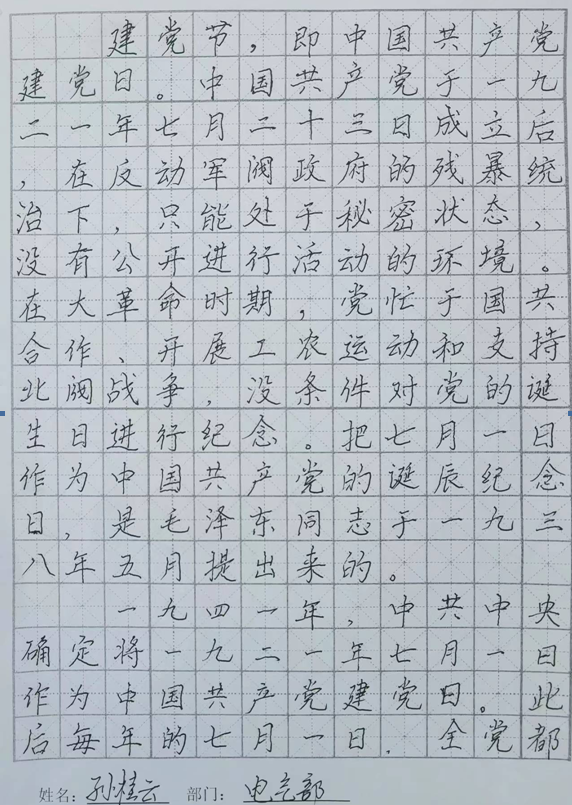 建党节，即中国共产党
建党日。中国共产党于一九
二一年七月二十三日成立后
，在反动军阀政府的残暴统
治下，只能处于秘密状态，
没有公开进行活动的环境。
在大革命时期，党忙于国共
合作、开展工农运动和支持
北阀战争，没条件对党的诞
生日进行纪念。把七月一日
作为中国共产党的诞辰纪念
日，是毛泽东同志于一九三
八年五月提出来的。
一九四一年，中共中央
确定将一九二一年七月一日
作为中国共产党建党日。此
后每年的七月一日．全党都
姓名：孙桂云 部门：电气部